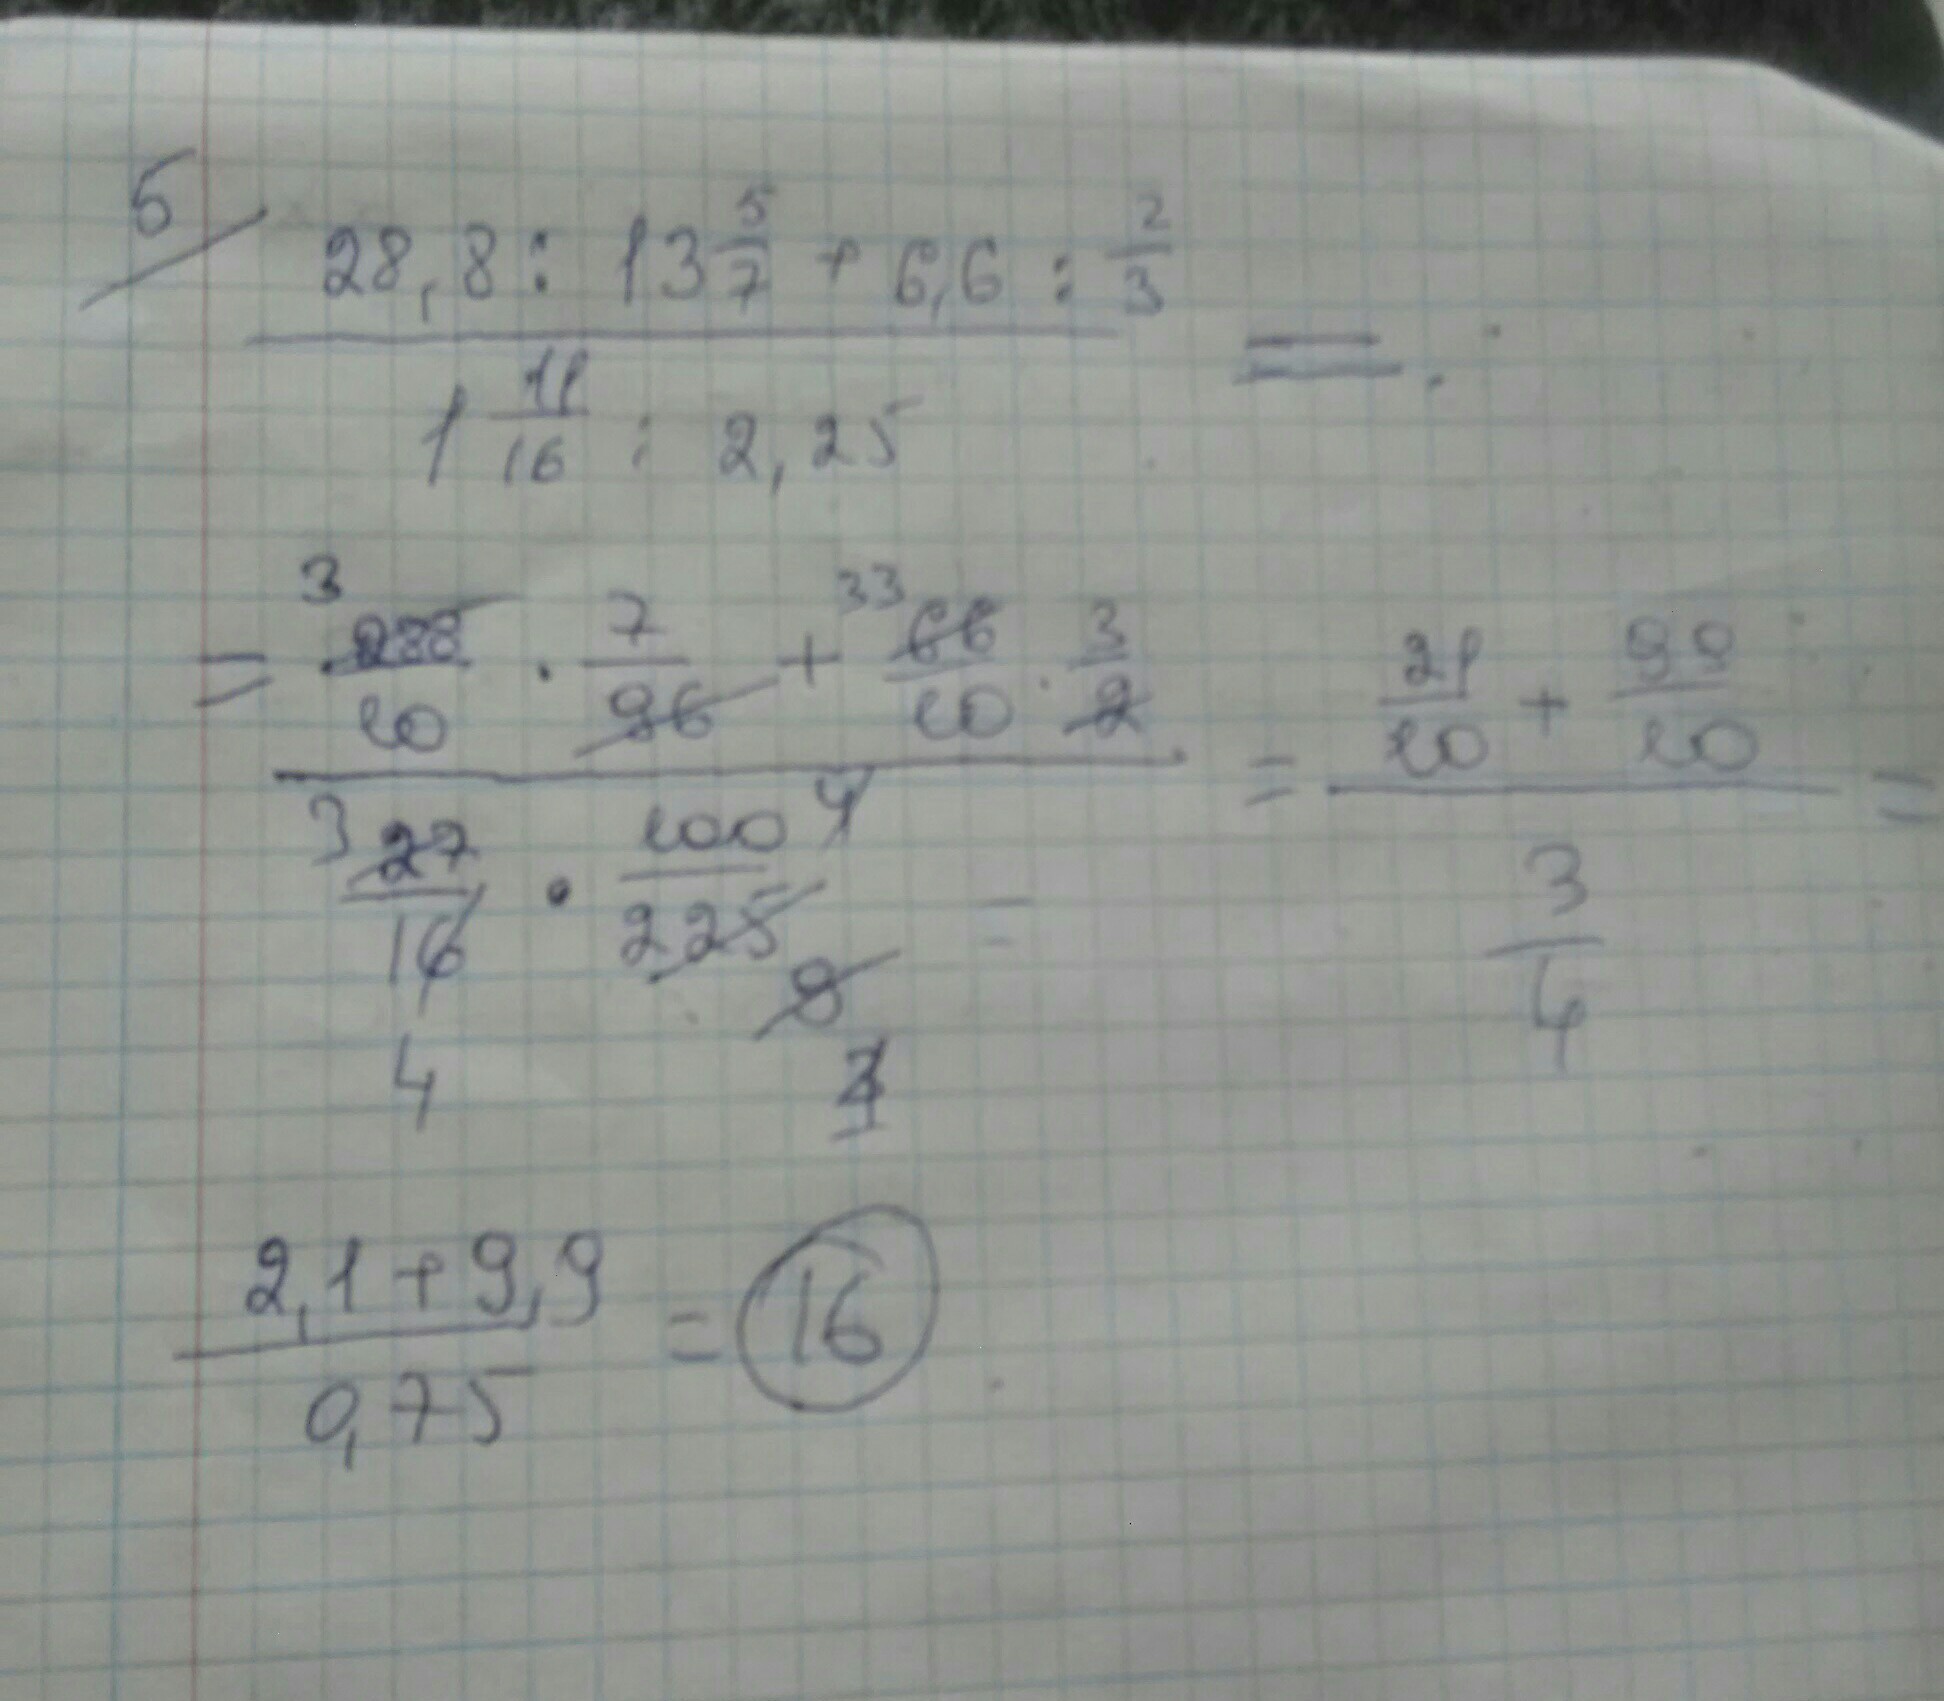 5/
28,8 : 13 5/7 + 6,6 : 2/3
1 11/16 : 2,25
=
= 3 288/10 · 7/96 + 33 66/10 · 3/2
3 27/16 4 · 100 4/225 9
= 21/10 + 99/10
3/4
=
2,1 + 9,9
0,75
= 16